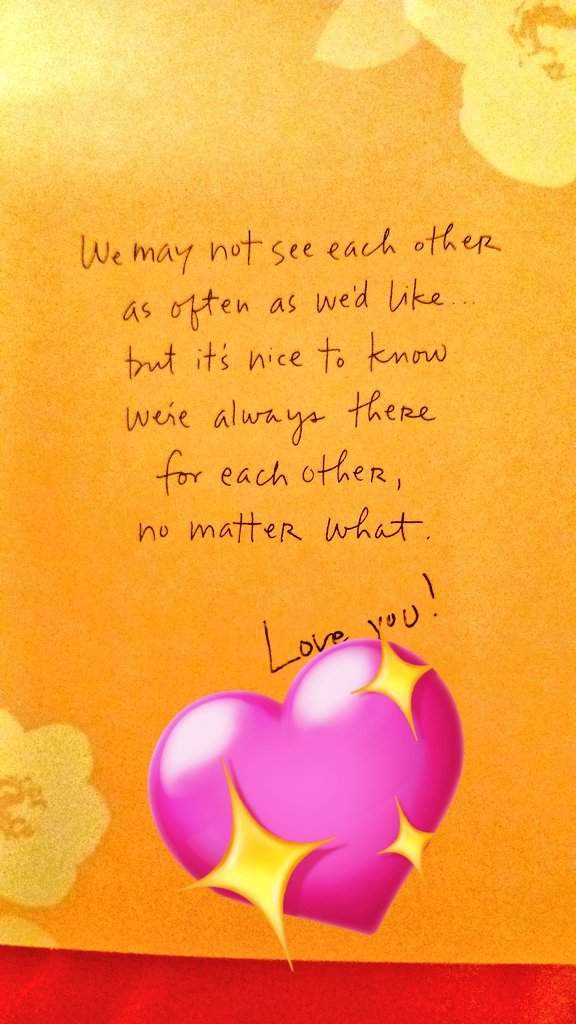 We may not see each other
as often as we'd like...
but it's nice to know
we're always there
for each other,
no matter what.
Love you!